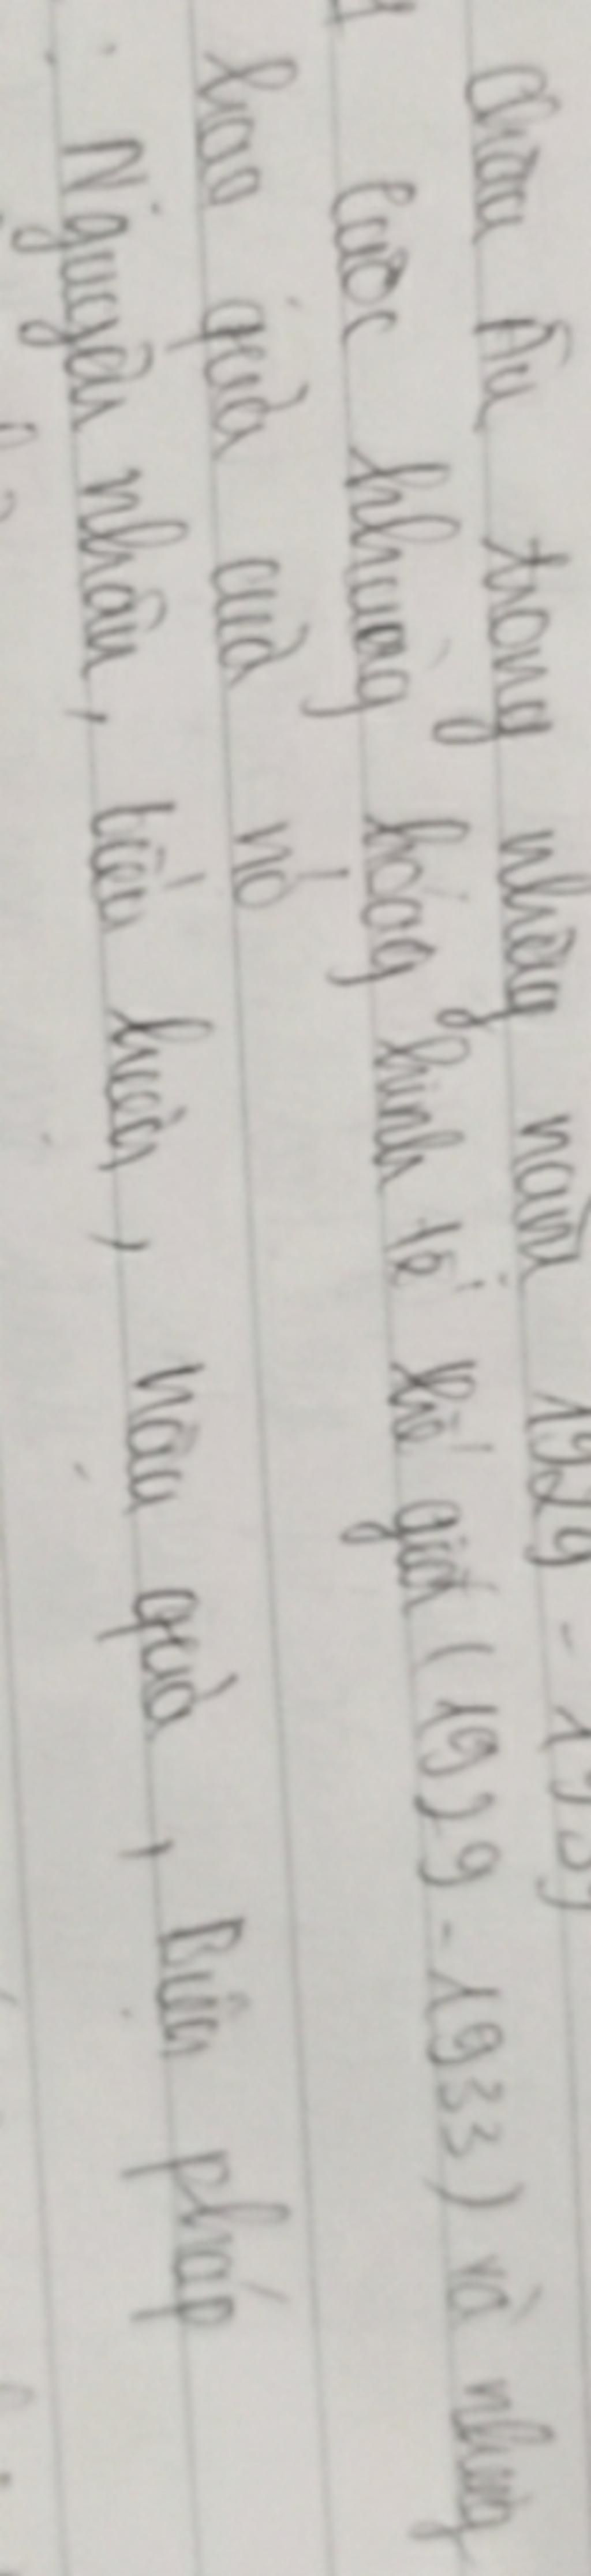 Châu Âu trong những năm 1929 - 1939
1 Cuộc khủng hoảng kinh tế thế giới (1929 - 1933) và những
hậu quả của nó
. Nguyên nhân, biểu hiện, hậu quả, Biện pháp